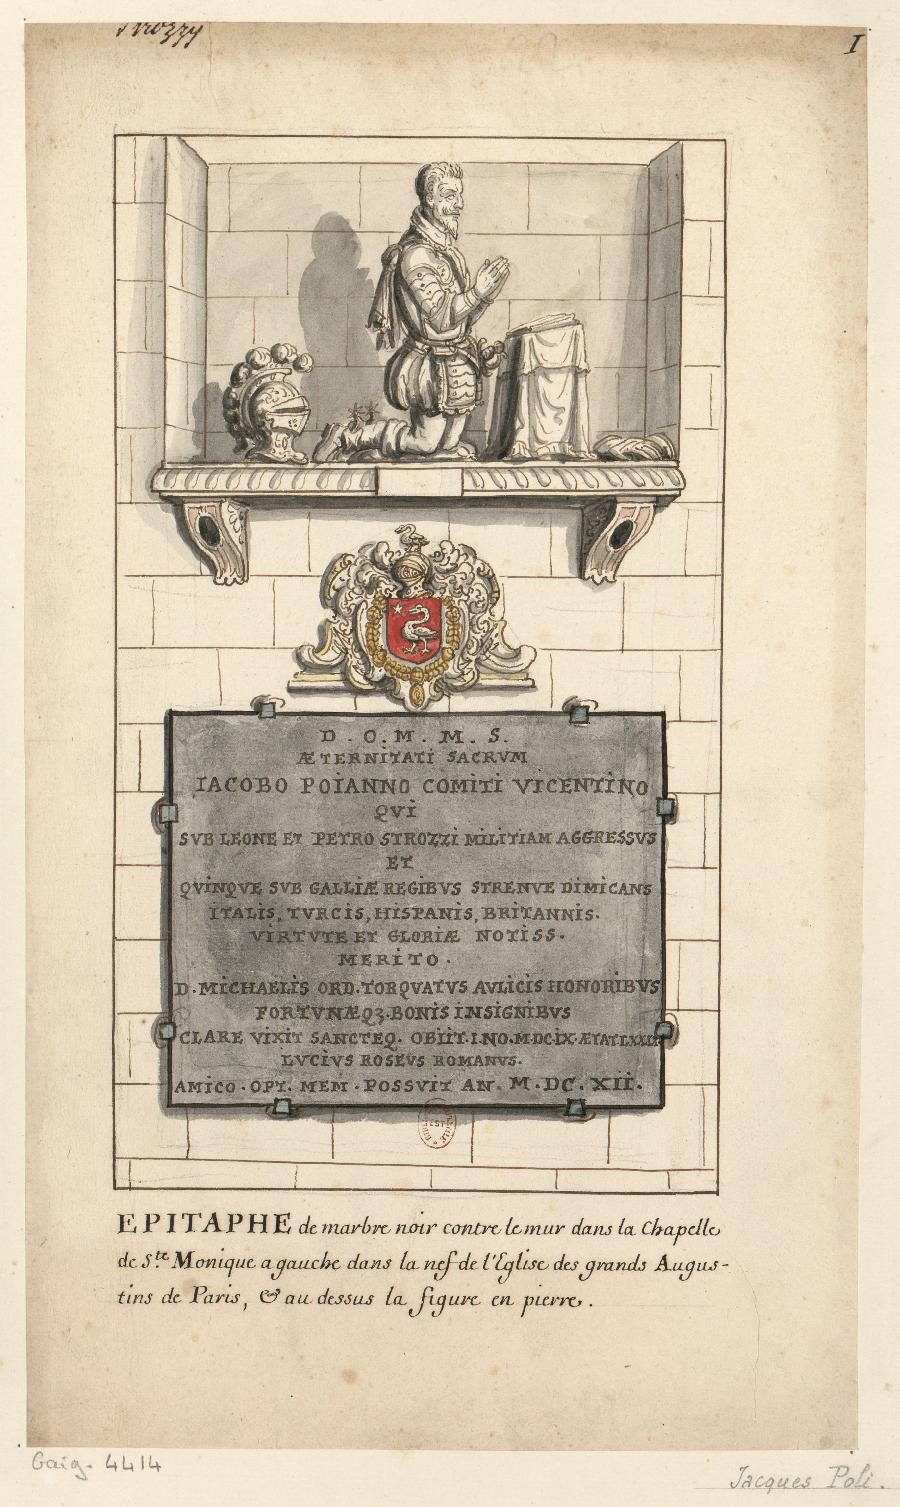 Strozzy
I
D. O. M. M. S.
ÆTERNITATI SACRVM
IACOBO POIANNO COMITI VICENTINO
QVI
SVB LEONE ET PETRO STROZZI MILITIAM AGGRESSVS
ET
QVINQVE SVB GALLIÆ REGIBVS STRENVE DIMICANS
ITALIS, TVRCIS, HISPANIS, BRITANNIS.
VIRTVTE ET GLORIÆ NOTISS.
MERITO.
D. MICHAELIS ORD. TORQVATVS AVLICIS HONORIBVS
FORTVNÆQ3. BONIS INSIGNIBVS
CLARE VIXIT SANCTEQ. OBIIT. I. NO. M.DC.IX. ÆTAT.
LVCIVS ROSEVS ROMANVS.
AMICO. OPT. MEM. POSSVIT AN. M.DC.XII.
EPITAPHE de marbre noir contre le mur dans la Chapelle
de S.te Monique a gauche dans la nef de l'Eglise des grands Augus-
tins de Paris, & au dessus la figure en pierre.
Gaig. 4414
Jacques Poli.